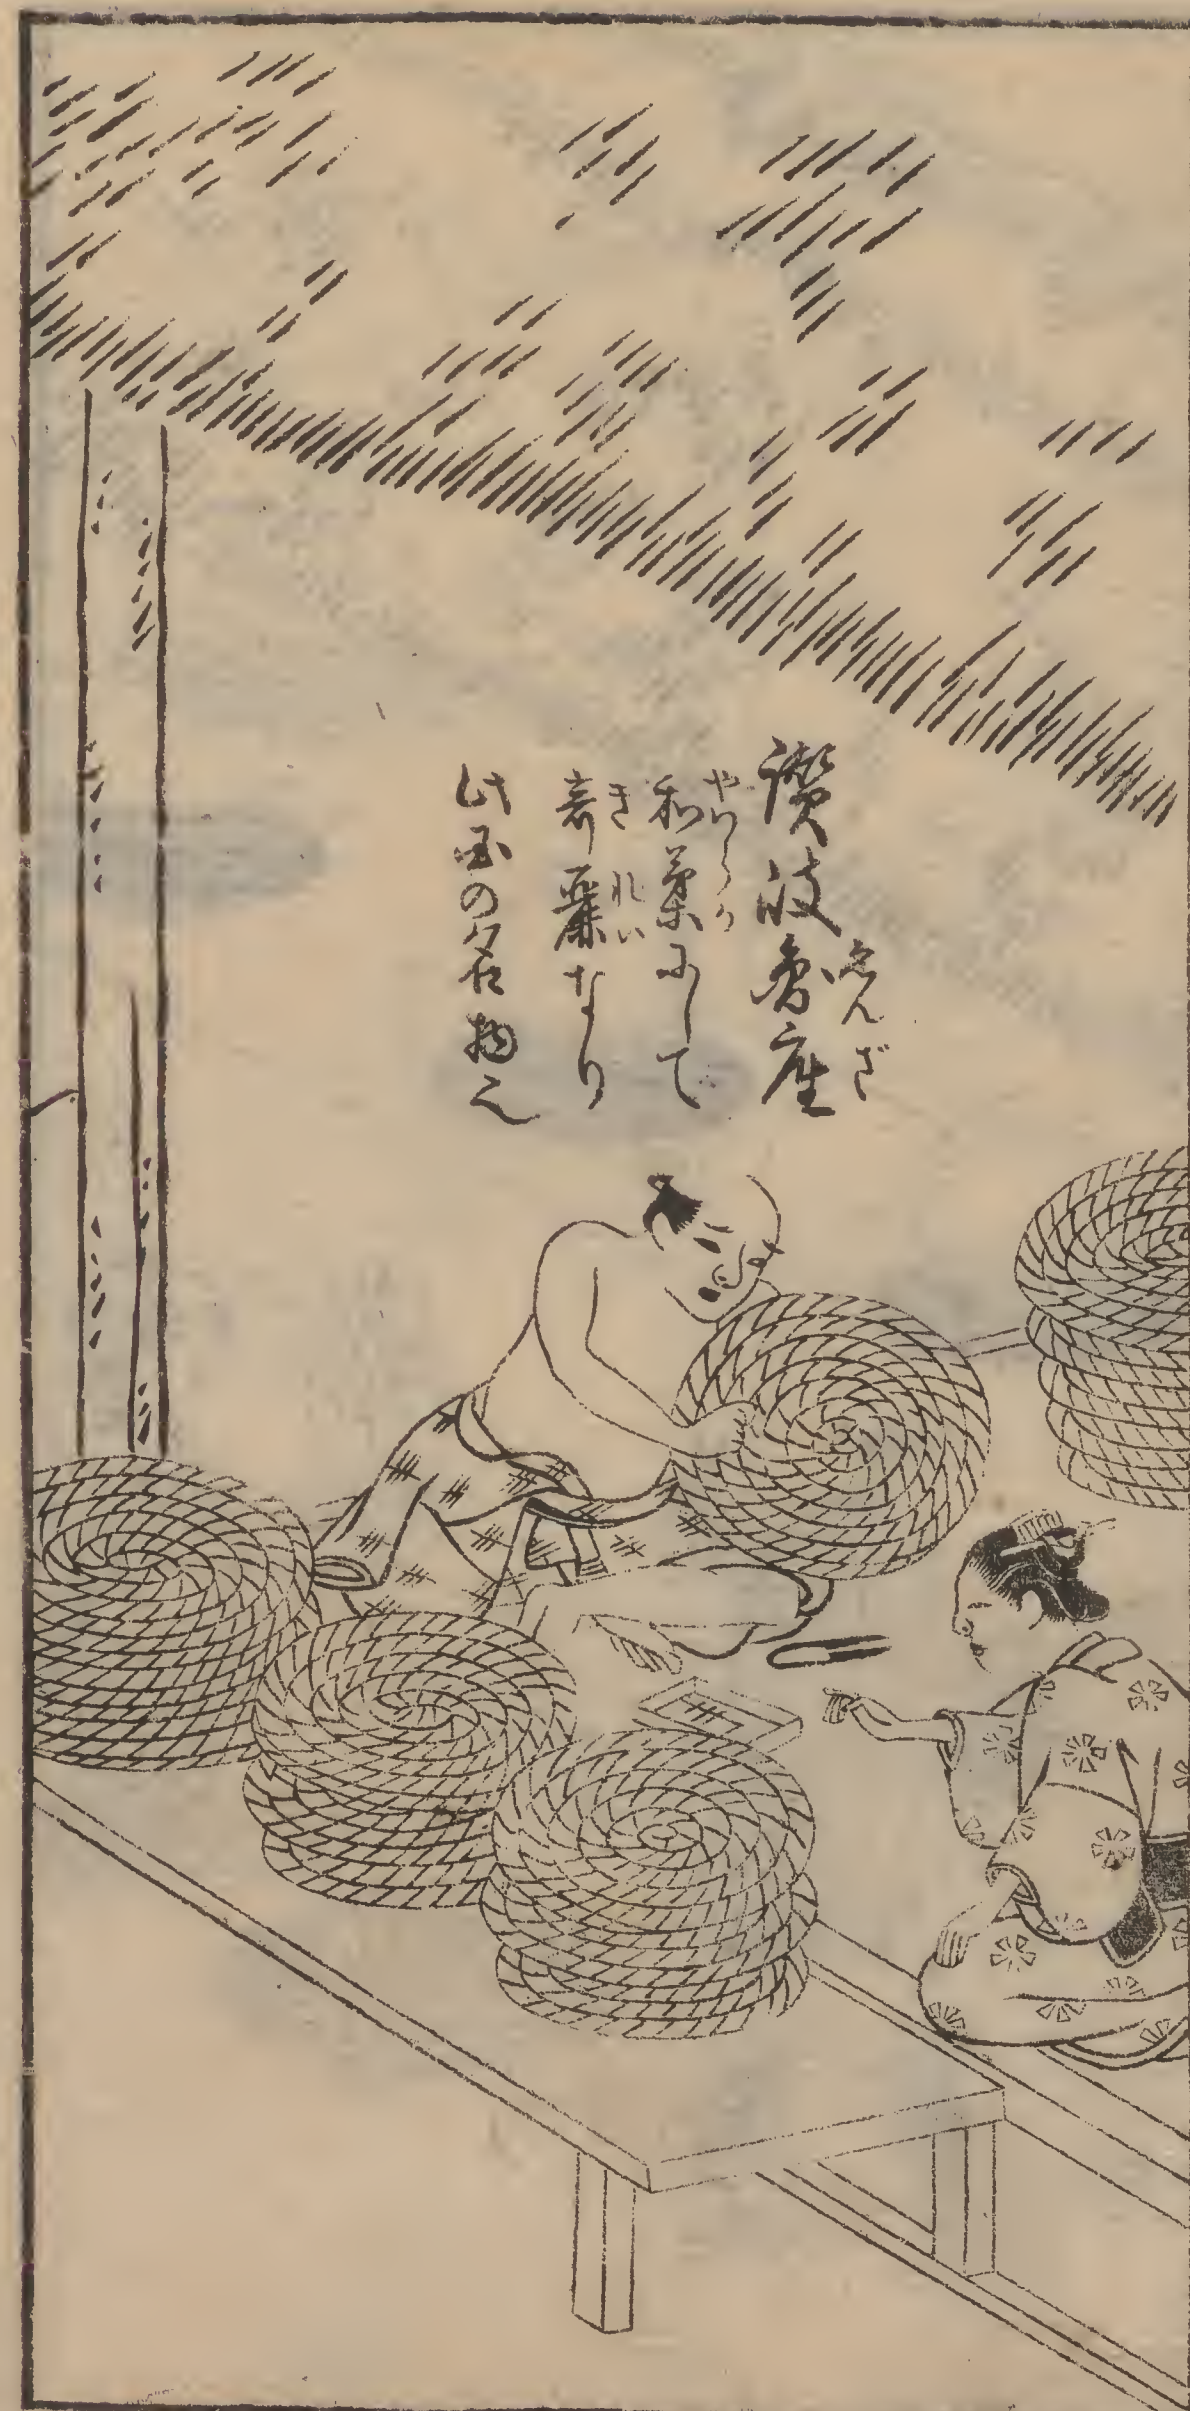 讃岐圓座
ゑんざ
和柔にして
やハらか
奇麗なり
きれい
此国の名物也